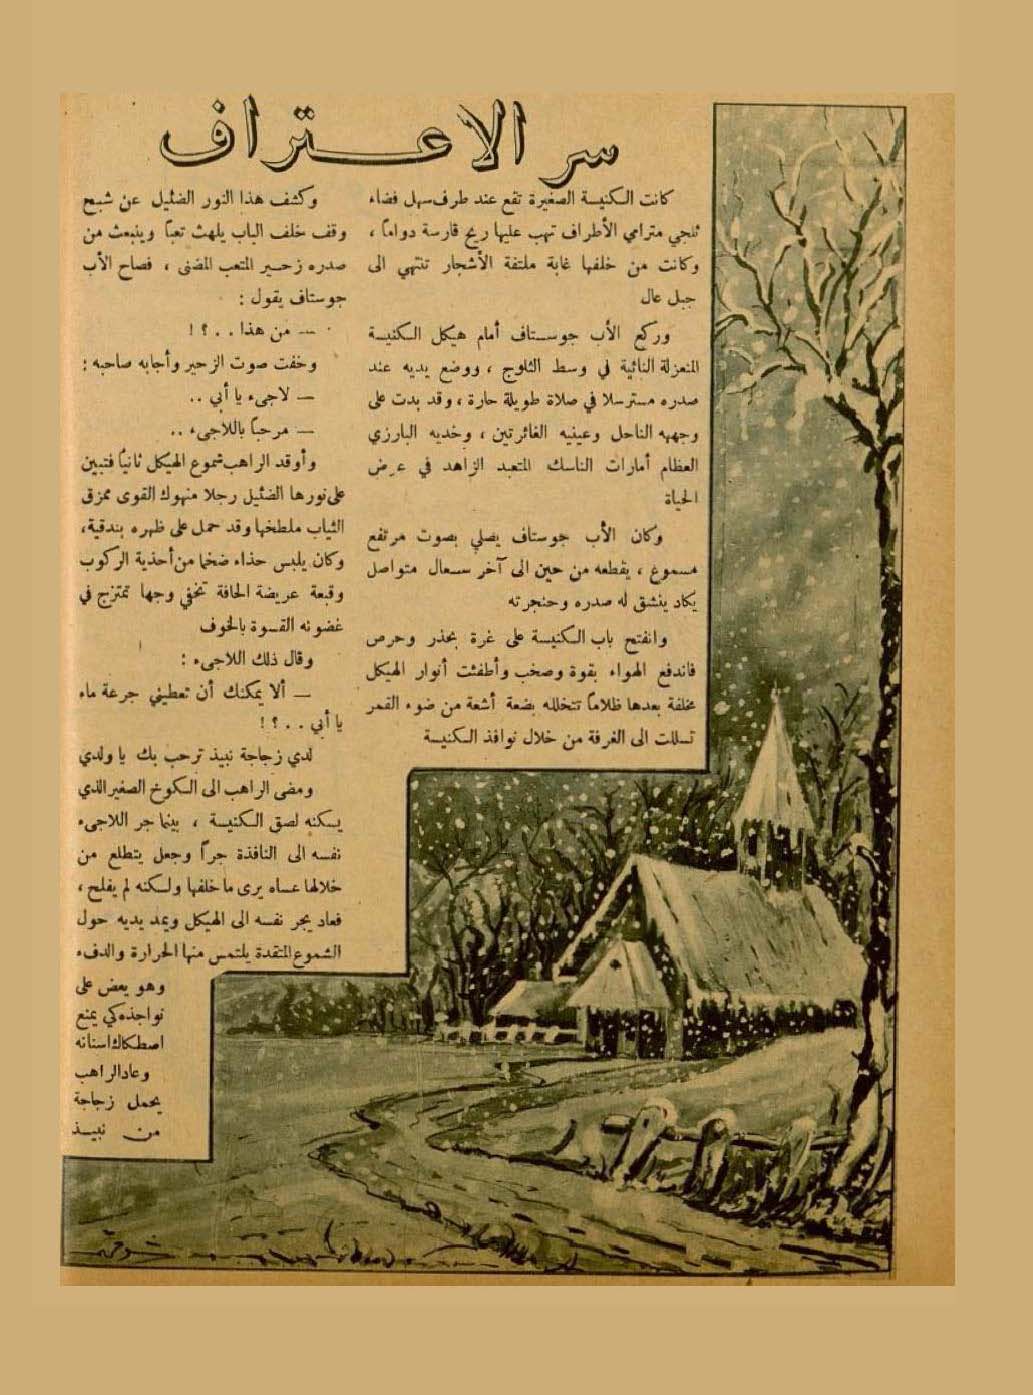 سر الاعتراف
كانت الكنيسة الصغيرة تقع عند طرف سهل فضاء
ثلجي مترامي الأطراف تهب عليها ريح قارسة دواماً ،
وكانت من خلفها غابة ملتفة الأشجار تنتهي الى
جبل عال
وركع الأب جوستاف أمام هيكل الكنيسة
المنعزلة النائية في وسط الثلوج ، ووضع يديه عند
صدره مسترسلا في صلاة طويلة حارة ، وقد بدت على
وجهه الناحل وعينيه الغائرتين ، وخديه البارزي
العظام أمارات الناسك المتعبد الزاهد في عرض
الحياة
وكان الأب جوستاف يصلي بصوت مرتفع
مسموع ، يقطعه من حين الى آخر سعال متواصل
يكاد ينشق له صدره وحنجرته
وانفتح باب الكنيسة على غرة بحذر وحرص
فاندفع الهواء بقوة وصخب وأطفئت أنوار الهيكل
مخلفة بعدها ظلاماً تتخلله بضعة أشعة من ضوء القمر
تسللت الى الغرفة من خلال نوافذ الكنيسة
وكشف هذا النور الضئيل عن شبح
وقف خلف الباب يلهث تعباً وينبعث من
صدره زحير المتعب المضنى ، فصاح الأب
جوستاف يقول :
— من هذا . . ؟ !
وخفت صوت الزحير وأجابه صاحبه :
— لاجىء يا أبي ..
— مرحباً باللاجىء ..
وأوقد الراهب شموع الهيكل ثانياً فتبين
على نورها الضئيل رجلا منهوك القوى ممزق
الثياب ملطخها وقد حمل على ظهره بندقية،
وكان يلبس حذاء ضخما من أحذية الركوب
وقبعة عريضة الحافة تخفي وجها تمتزج في
غضونه القسوة بالخوف
وقال ذلك اللاجىء :
— ألا يمكنك أن تعطيني جرعة ماء
يا أبي . . ؟ !
لدي زجاجة نبيذ ترحب بك يا ولدي
ومضى الراهب الى الكوخ الصغير الذي
يسكنه لصق الكنيسة ، بينما جر اللاجىء
نفسه الى النافذة جراً وجعل يتطلع من
خلالها عساه يرى ما خلفها ولكنه لم يفلح ،
فعاد يجر نفسه الى الهيكل ويمد يديه حول
الشموع المتقدة يلتمس منها الحرارة والدفء
وهو يعض على
نواجذه كي يمنع
اصطكاك اسنانه
وعاد الراهب
يحمل زجاجة
من نبيذ